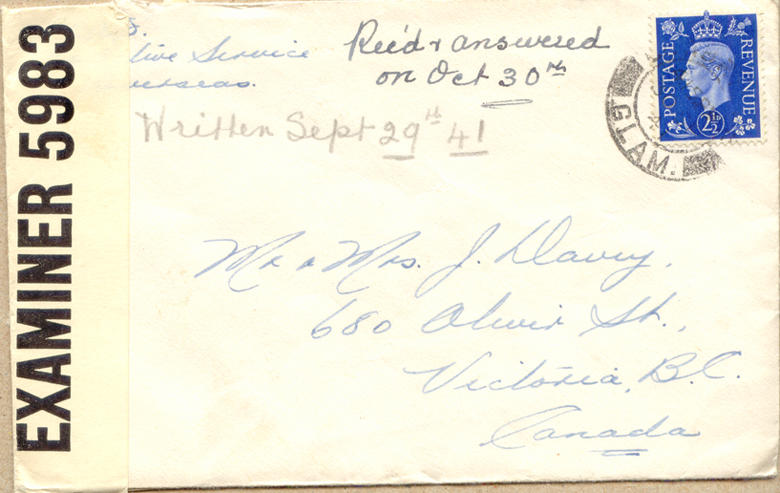 EXAMINER 5983
tive Service
verseas.
Rec'd & answered
on Oct 30th
Written Sept 29th 41
POSTAGE
REVENUE
2½D
GLAM.
Mr & Mrs. J. Davey,
680 Oliver St.,
Victoria, B.C.
Canada